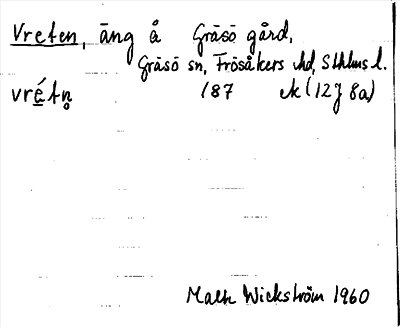 Vreten, äng å Gräsö gård,
Gräsö sn, Frösåkers hd, Sthlms l.
vré̱tn̥ 187 ek (12J 8a)
Malte Wickström 1960